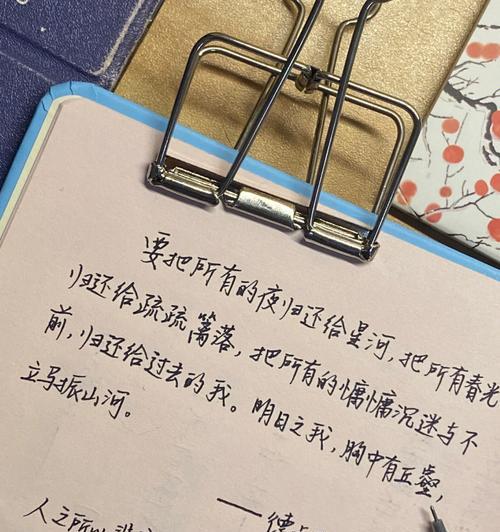 要把所有的夜归还给星河，把所有春光
归还给疏疏篱落，把所有的慵慵沉迷与不
前，归还给过去的我。明日之我，胸中有丘壑，
立马振山河。
——德
人之所以